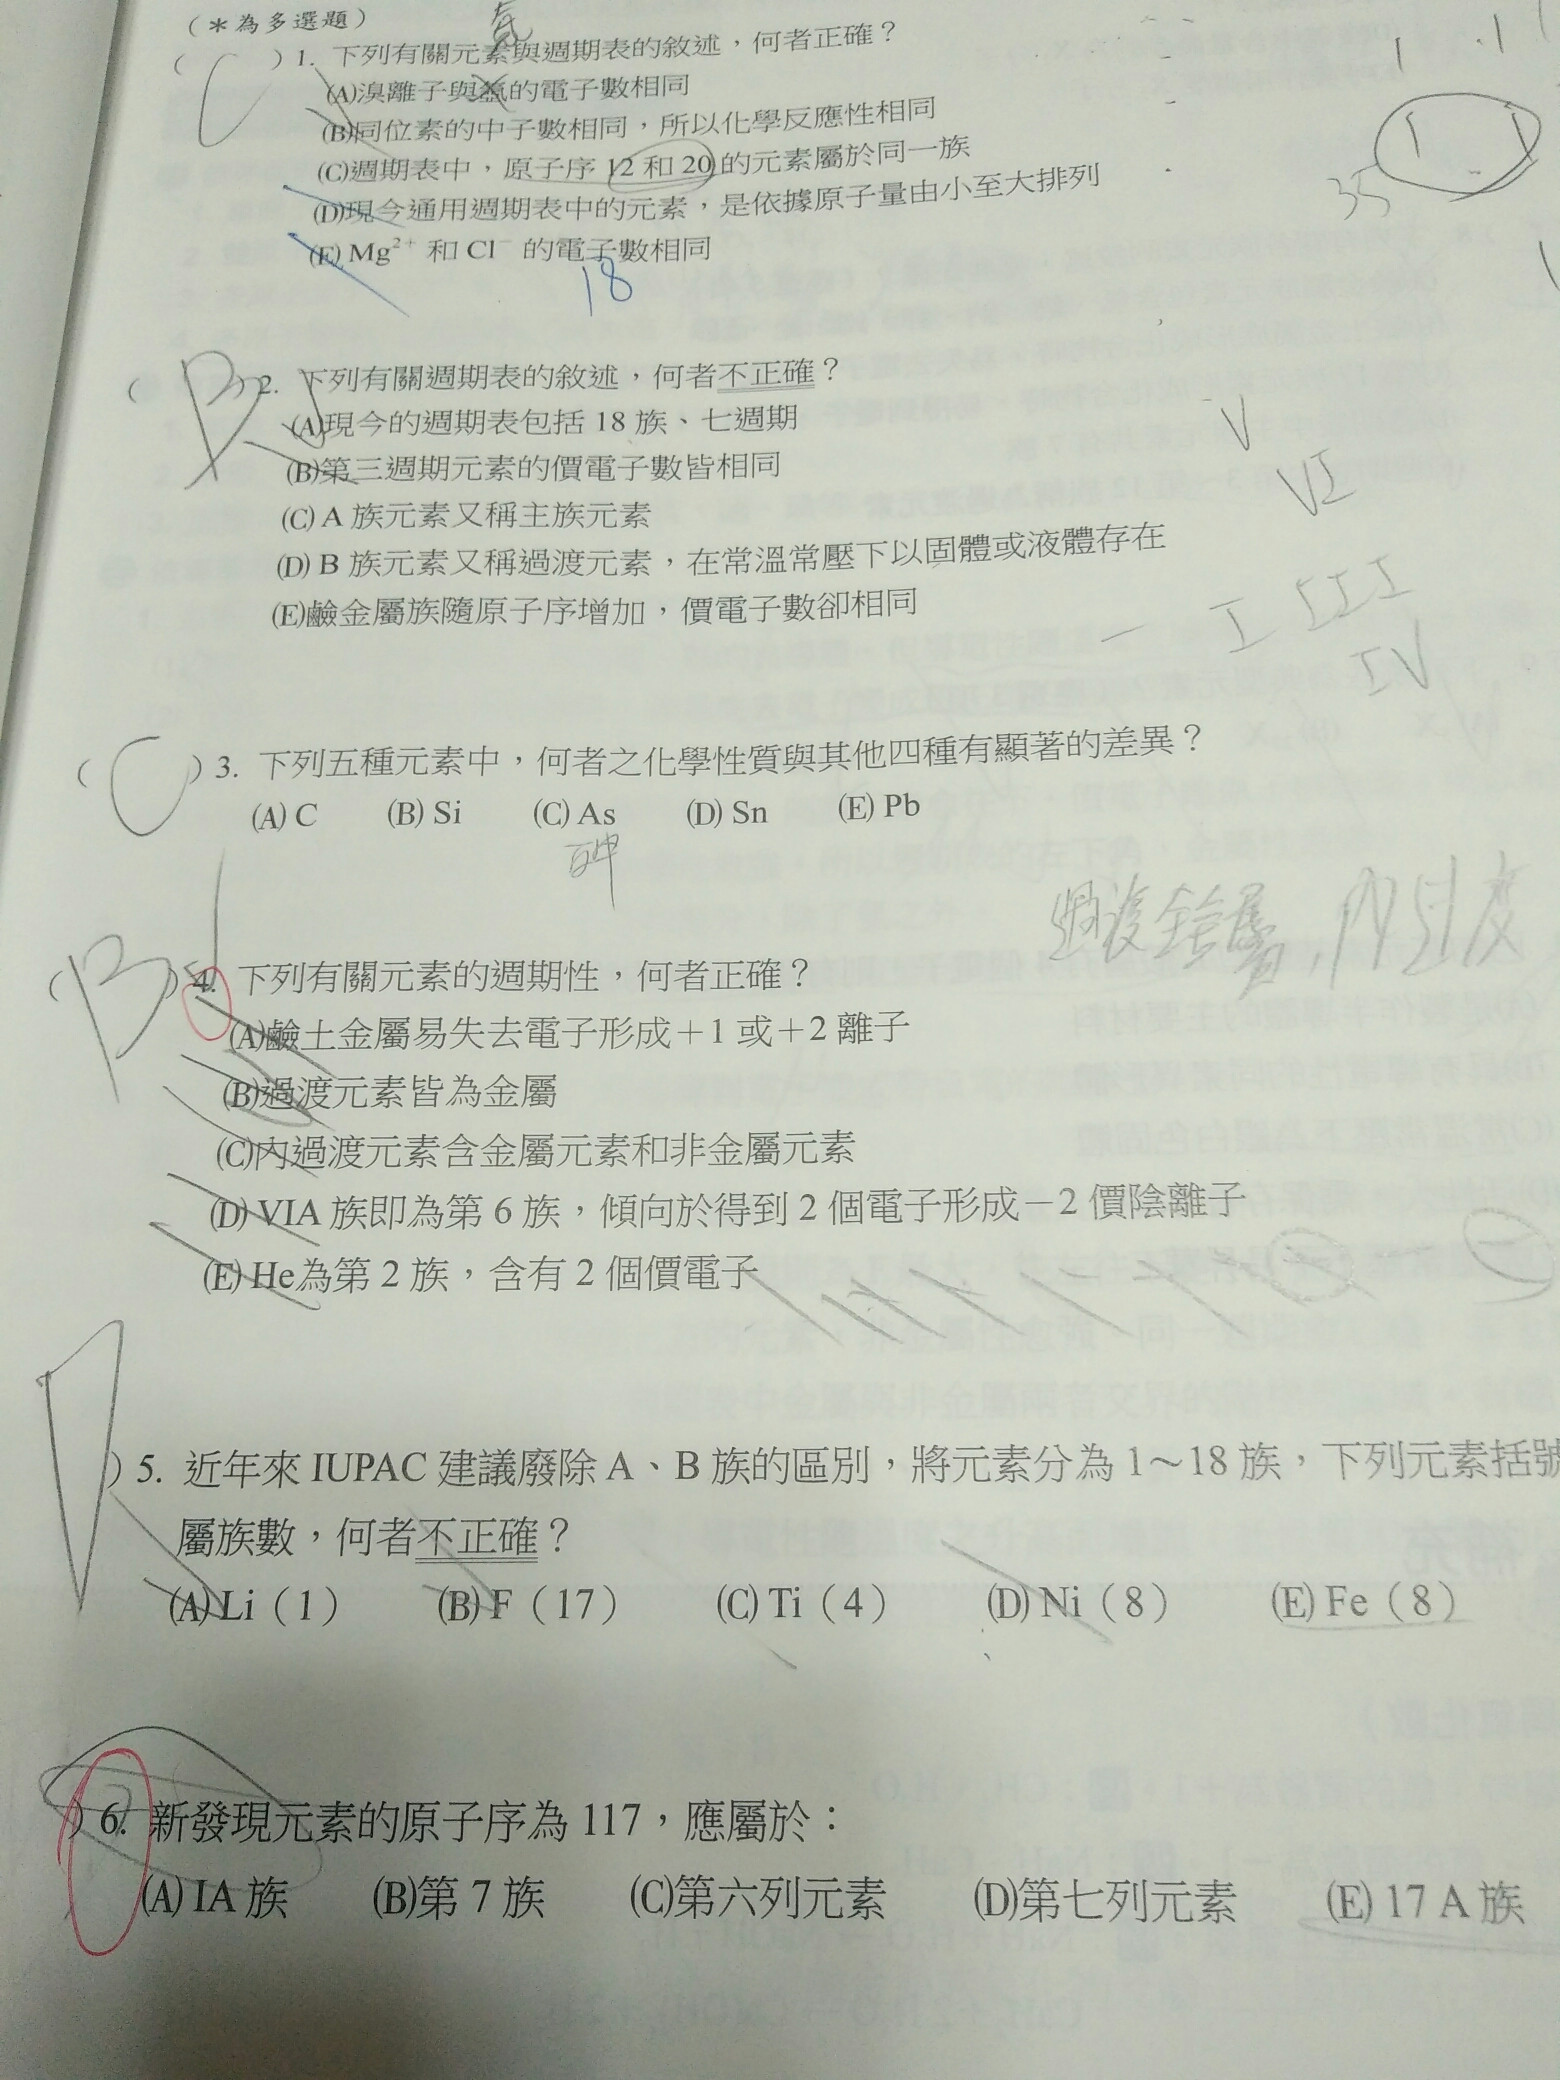 (＊為多選題)
氪
( C ) 1. 下列有關元素與週期表的敘述，何者正確？
(A)溴離子與氬的電子數相同
(B)同位素的中子數相同，所以化學反應性相同
(C)週期表中，原子序 12 和 20 的元素屬於同一族
(D)現今通用週期表中的元素，是依據原子量由小至大排列
35
(E) Mg²⁺ 和 Cl⁻ 的電子數相同
18
( B ) 2. 下列有關週期表的敘述，何者不正確？
(A)現今的週期表包括 18 族、七週期
V
(B)第三週期元素的價電子數皆相同
VI
(C) A 族元素又稱主族元素
(D) B 族元素又稱過渡元素，在常溫常壓下以固體或液體存在
(E)鹼金屬族隨原子序增加，價電子數卻相同
I III
IV
( C ) 3. 下列五種元素中，何者之化學性質與其他四種有顯著的差異？
(A) C (B) Si (C) As (D) Sn (E) Pb
砷
( B ) 4. 下列有關元素的週期性，何者正確？
(A)鹼土金屬易失去電子形成＋1 或＋2 離子
(B)過渡元素皆為金屬
(C)內過渡元素含金屬元素和非金屬元素
(D) VIA 族即為第 6 族，傾向於得到 2 個電子形成－2 價陰離子
(E) He為第 2 族，含有 2 個價電子
D
) 5. 近年來 IUPAC 建議廢除 A、B 族的區別，將元素分為 1～18 族，下列元素括號
屬族數，何者不正確？
(A) Li（1） (B) F（17） (C) Ti（4） (D) Ni（8） (E) Fe（8）
) 6. 新發現元素的原子序為 117，應屬於：
(A) IA 族 (B)第 7 族 (C)第六列元素 (D)第七列元素 (E) 17 A 族